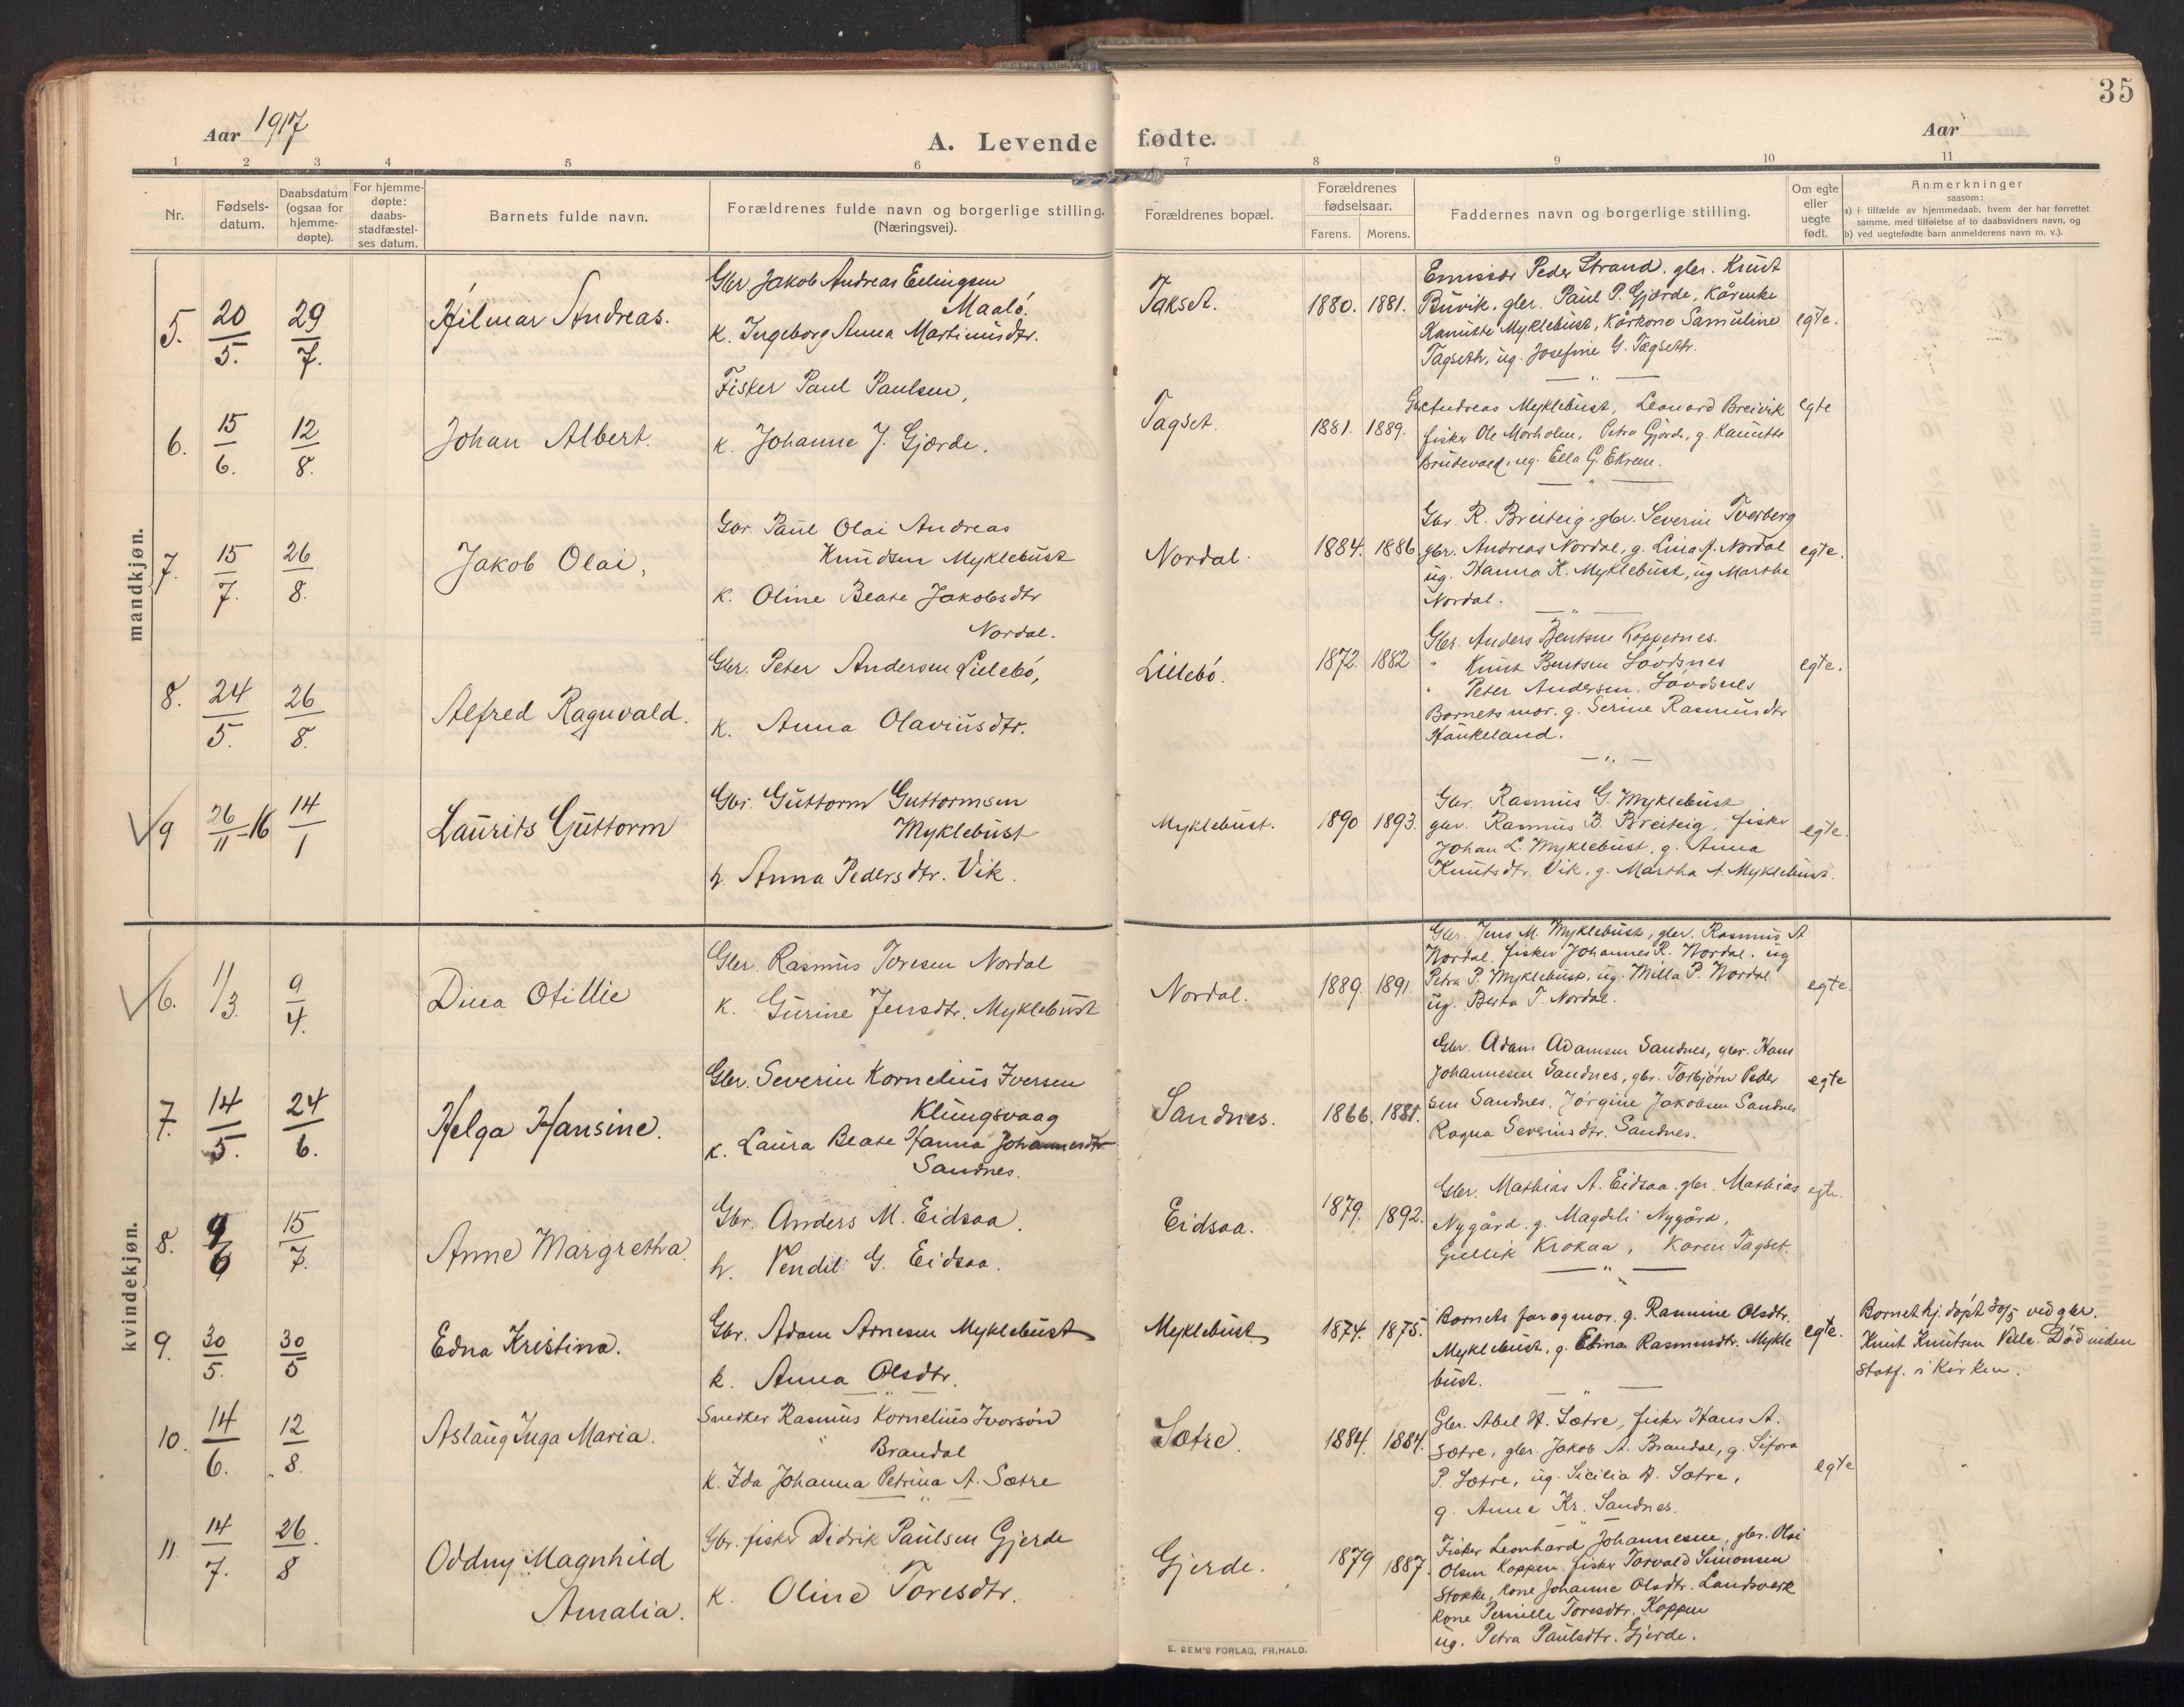 35
Aar 1917
A. Levende fødte.
Aar
1 2 3 4 5 6 7 8 9 10 11
Nr.
Fødsels-
datum.
Daabsdatum
(ogsaa for
hjemme-
døpte).
For hjemme-
døpte:
daabs-
stadfæstel-
ses datum.
Barnets fulde navn.
Forældrenes fulde navn og borgerlige stilling.
(Næringsvei).
Forældrenes bopæl.
Forældrenes
fødselsaar.
Farens. Morens.
Faddernes navn og borgerlige stilling.
Om egte
eller
uegte
født.
Anmerkninger
saasom:
a) i tilfælde av hjemmedaab, hvem der har forrettet
samme, med tilføielse af to daabsvidners navn, og
b) ved uegtefødte barn anmelderens navn m. v.).
mandkjøn.
5. 20/5. 29/7.
Hilmar Andreas.
Gbr Jakob Andreas Ellingsen
Maalö.
k. Ingeborg Anna Martinusdtr.
Takset.
1880. 1881.
Emissær Peder Strand. gbr. Knut
Buvik, gbr. Paul P. Gjærde, Kårenke
Kanutte Myklebust, Kårkone Samuline
Tagseth, ug. Josefine G. Tagseth.
egte.
6. 15/6. 12/8.
Johan Albert.
Fisker Paul Paulsen,
k. Johanne J. Gjærde.
Tagset.
1881. 1889.
Gbr Andreas Myklebust, Leonard Breivik
fisker Ole Morholm, Petra Gjörde, g. Kanutte
Brudevold, ug. Ella G. Ekrem.
egte
7. 15/7. 26/8.
Jakob Olai,
Gbr. Paul Olai Andreas
Knudsen Myklebust
k. Oline Beate Jakobsdtr
Nordal.
Nordal.
1884. 1886.
Gbr R. Breiteig, gbr. Severin Tverberg
gbr. Andreas Nordal, g. Lina J. Nordal
ug. Hanna K. Myklebust, ug Martha
Nordal.
egte.
8. 24/5. 26/8.
Alfred Ragnvald.
Gbr. Peter Andersen Lillebö,
k. Anna Olaviusdtr.
Lillebö.
1872. 1882
Gbr. Anders Bentsen Koppernes.
" Knut Bentsen Lövdsnes
" Peter Andersen Lövdsnes
Barnets mor. g. Serine Rasmusdtr
Haukeland.
egte.
9 26/11-16 14/1
Laurits Guttorm
Gbr. Guttorm Guttormsen
Myklebust
h. Anna Pedersdtr. Vik.
Myklebust.
1890 1893.
Gbr. Rasmus G. Myklebust
gbr. Rasmus B. Breiteig, fisker
Johan L. Myklebust, g. Anna
Knutsdtr. Vik, g. Martha A. Myklebust.
egte.
kvindekjøn.
6. 11/3. 9/4.
Dina Otillie
Gbr. Rasmus Toresen Nordal
k. Gurine Jensdtr. Myklebust
Nordal.
1889. 1891.
Gbr. Jens M. Myklebust, gbr. Rasmus A
Nordal. fisker Johannes R. Nordal. ug
Petra P. Myklebust, ug. Milla P. Nordal
ug. Berta T. Nordal.
egte.
7. 14/5. 24/6.
Helga Hansine.
Gbr. Severin Kornelius Iversen
Klungsvaag
k. Laura Beate Hanna Johannesdtr
Sandnes.
Sandnes.
1866. 1881.
Gbr. Adam Adamsen Sandnes, gbr. Hans
Johannesen Sandnes, gbr. Torbjörn Peder
sen Sandnes. Jörgine Jakobsen Sandnes
Ragna Severinsdtr. Sandnes.
egte
8. 9/6 15/7.
Anne Margretha.
Gbr. Anders M. Eidsaa.
h. Pendil G. Eidsaa.
Eidsaa.
1879. 1892.
Gbr. Mathias A. Eidsaa. gbr. Mathias
Nygård. g. Magdeli Nygård,
Gullik Krokaa, Karen Tagset.
egte.
9. 30/5. 30/5
Edna Kristina.
Gbr. Adam Arnesen Myklebust
k. Anna Olsdtr.
Myklebust
1874. 1875.
Barnets far og mor. g. Rasmine Olsdtr.
Myklebust, g. Elina Rasmusdtr. Mykle
bust.
egte.
Barnet hj. döpt 30/5 ved gbr.
Knut Knutsen Velle. Död uden
statf. i kirken.
10. 14/6. 12/8.
Aslaug Inga Maria.
Snerker Rasmus Kornelius Ivorsön
Brandal
k. Ida Johanna Petrina A. Sætre
Sætre.
1884. 1884.
Gbr. Abel A. Sætre, fisker Hans A.
Sætre, gbr. Jakob A. Brandal, g. Sifora
P. Sætre, ug. Sicilia A. Sætre,
g. Anne Kr. Sandnes.
egte
11. 14/7. 26/8.
Oddny Magnhild
Amalia.
Gbr. fisker Didrik Paulsen Gjerde
k. Oline Toresdtr.
Gjerde.
1879 1887.
Fisker Leonhard Johannesen, gbr. Olai
Olsen Koppen. fisker Torvald Simonsen
Stokke, kone Johanne Olsdtr. Landsverk
kone Pernille Toresdtr. Koppen
ug. Petra Paulsdtr. Gjerde.
E. SEM'S FORLAG, FR.HALD.